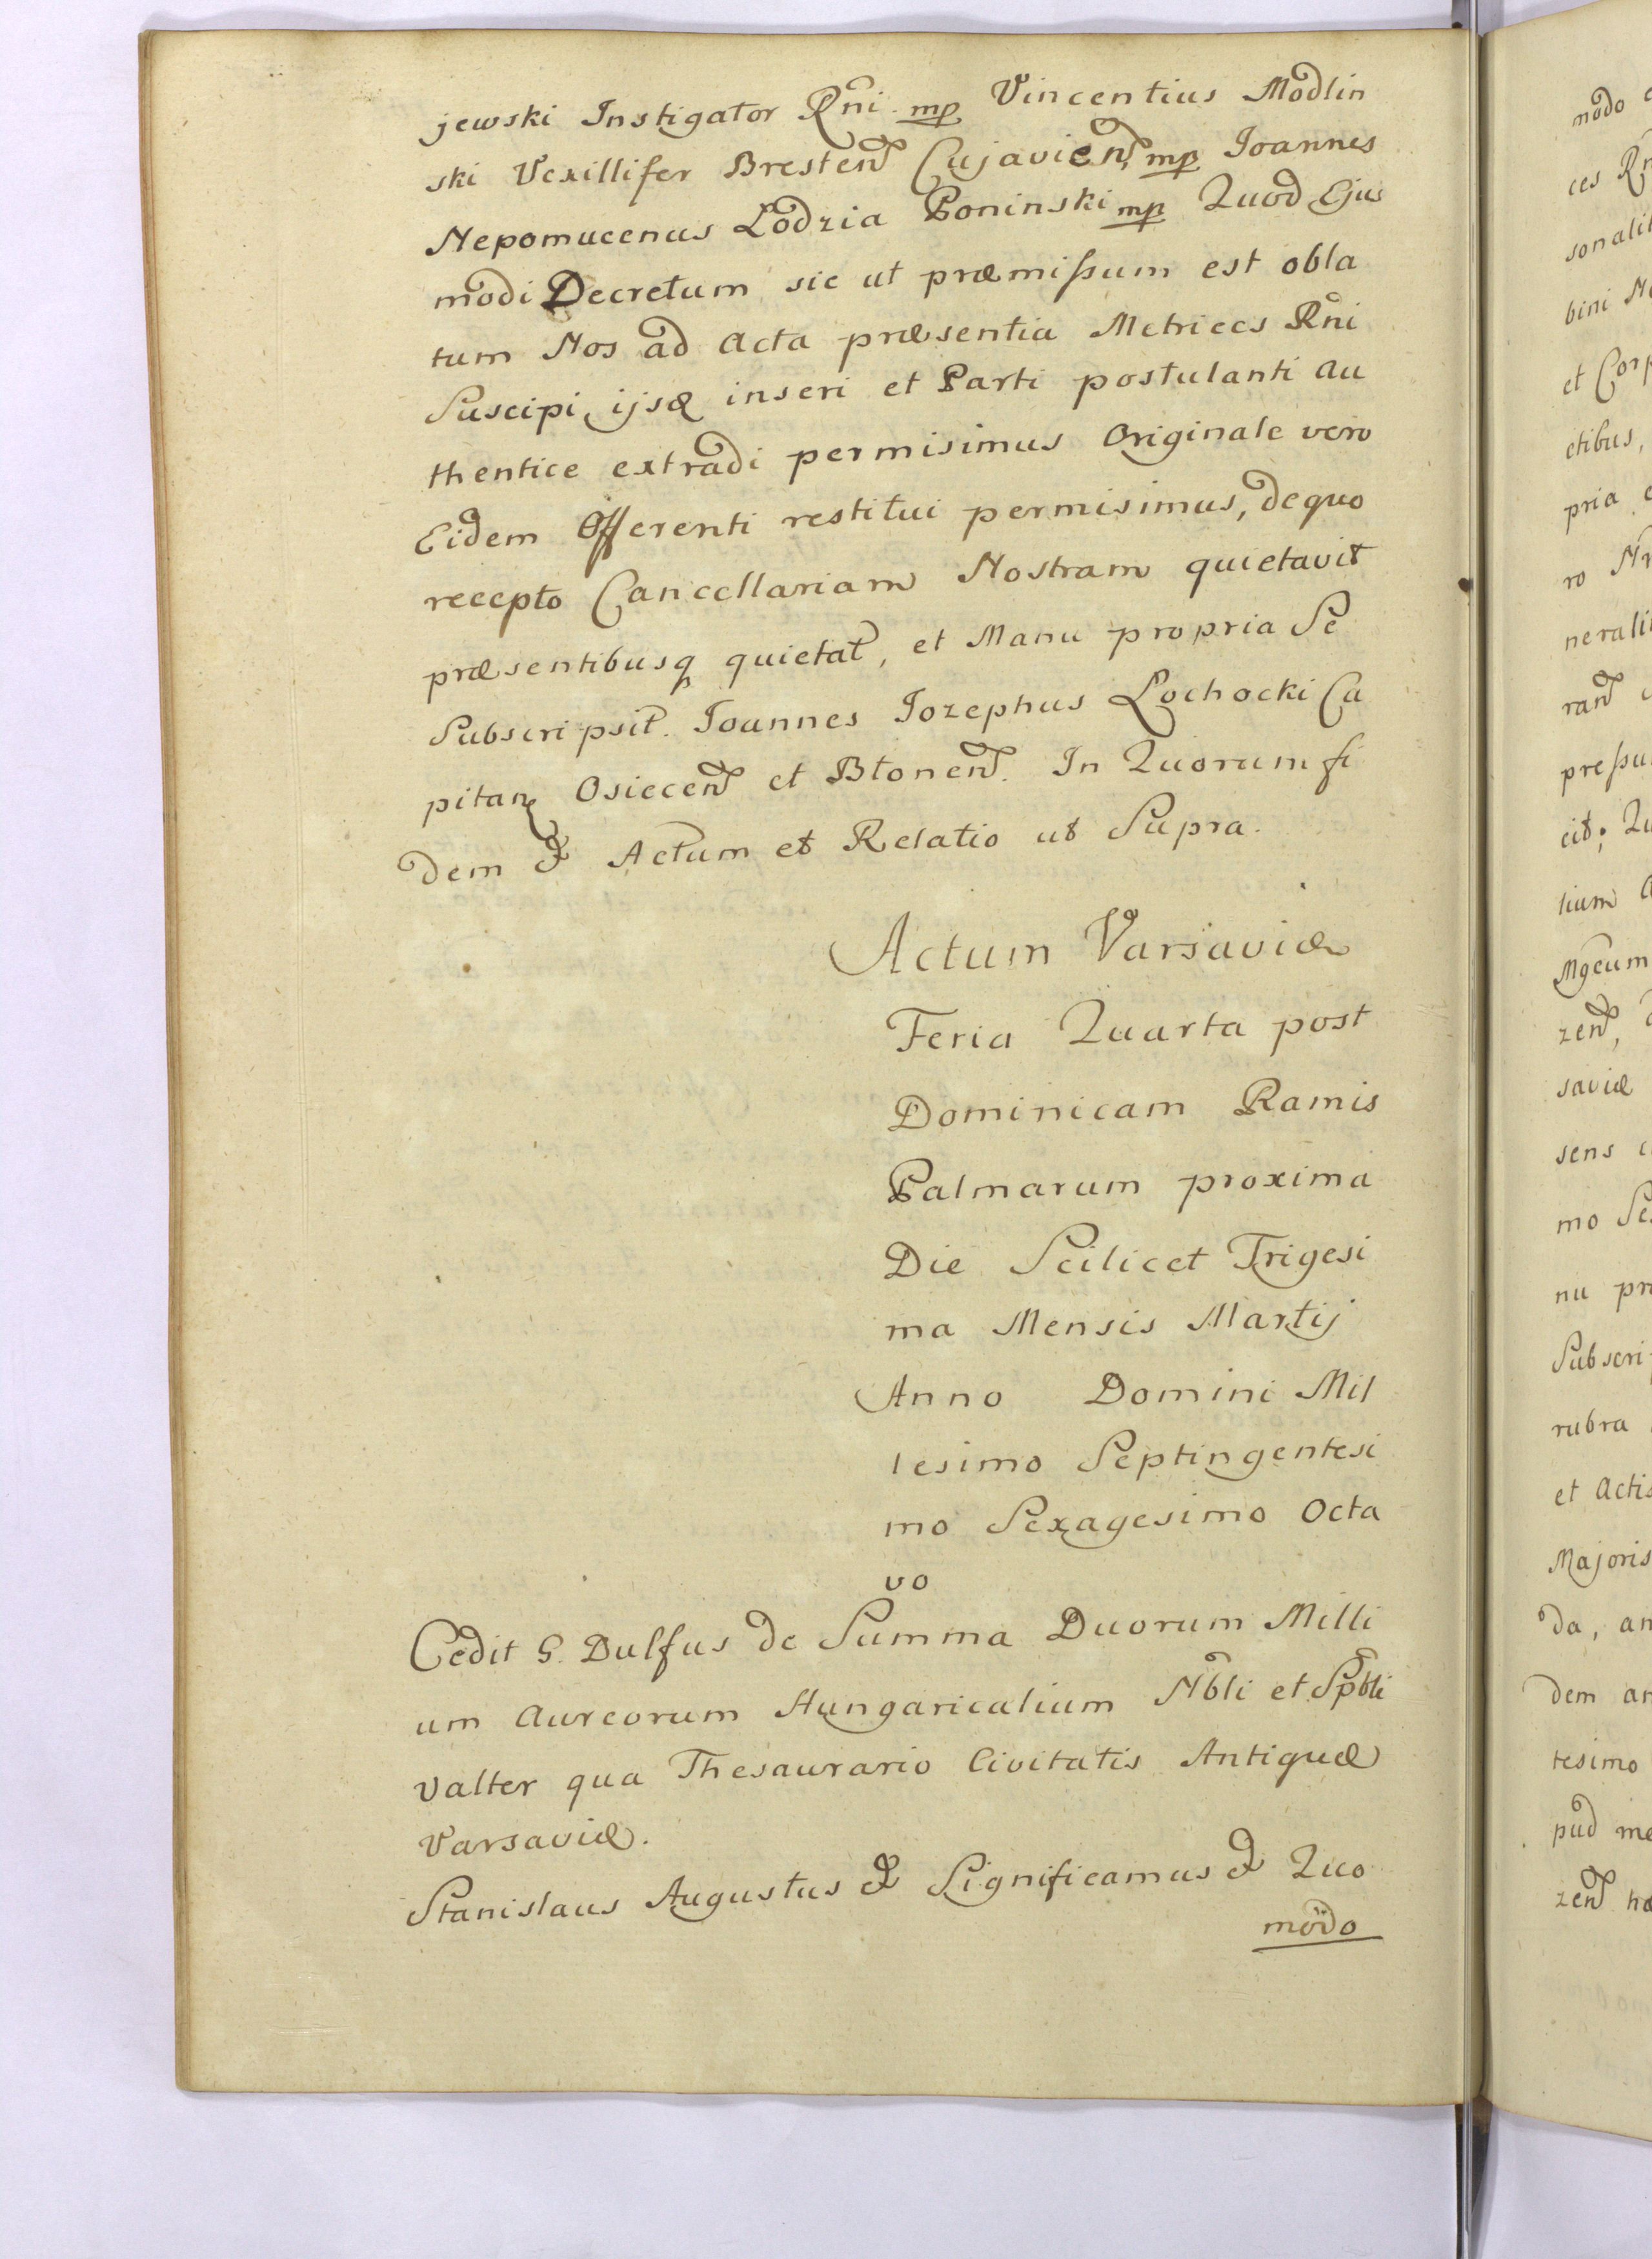 jewski Instigator Rni mp Vincentius Modlin
ski Vexillifer Bresten Cujavien mp Ioannes
Nepomucenus Lodzia Poninski mp Quod Ejus
modi Decretum sic ut præmissum est obla
tum Nos ad Acta præsentia Metrices Rni
Suscipi, ijsq inseri et Parti postulanti Au
thentice extradi permisimus Originale vero
Eidem Offerenti restitui permisimus, de quo
recepto Cancellariam Nostram quietavit
præsentibusq quietat, et Manu propria Se
Subscripsit. Ioannes Iozephus Łochocki Ca
pitan Osiecen et Błonen. In Quorum fi
dem & Actum et Relatio ut Supra.
Actum Varsaviæ
Feria Quarta post
Dominicam Ramis
Palmarum proxima
Die Scilicet Trigesi
ma Mensis Martij
Anno Domini Mil
lesimo Septingentesi
mo Sexagesimo Octa
vo
Cedit G. Dulfus de Summa Duorum Milli
um Aureorum Hungaricalium Nbli et Spbli
Valter qua Thesaurario Civitatis Antiquæ
Varsaviæ.
Stanislaus Augustus & Significamus & Quo
modo
modo
ces
sonali
bini
et Corp
ctibus,
pria
ro
nerali
ran
pressu
cit; Qu
lium
Mgcum
zen,
saviæ
sens
mo Se
nu pr
Subscri
rubra
et Actis
Majoris
da, an
dem an
tesimo
pud me
zen hæ